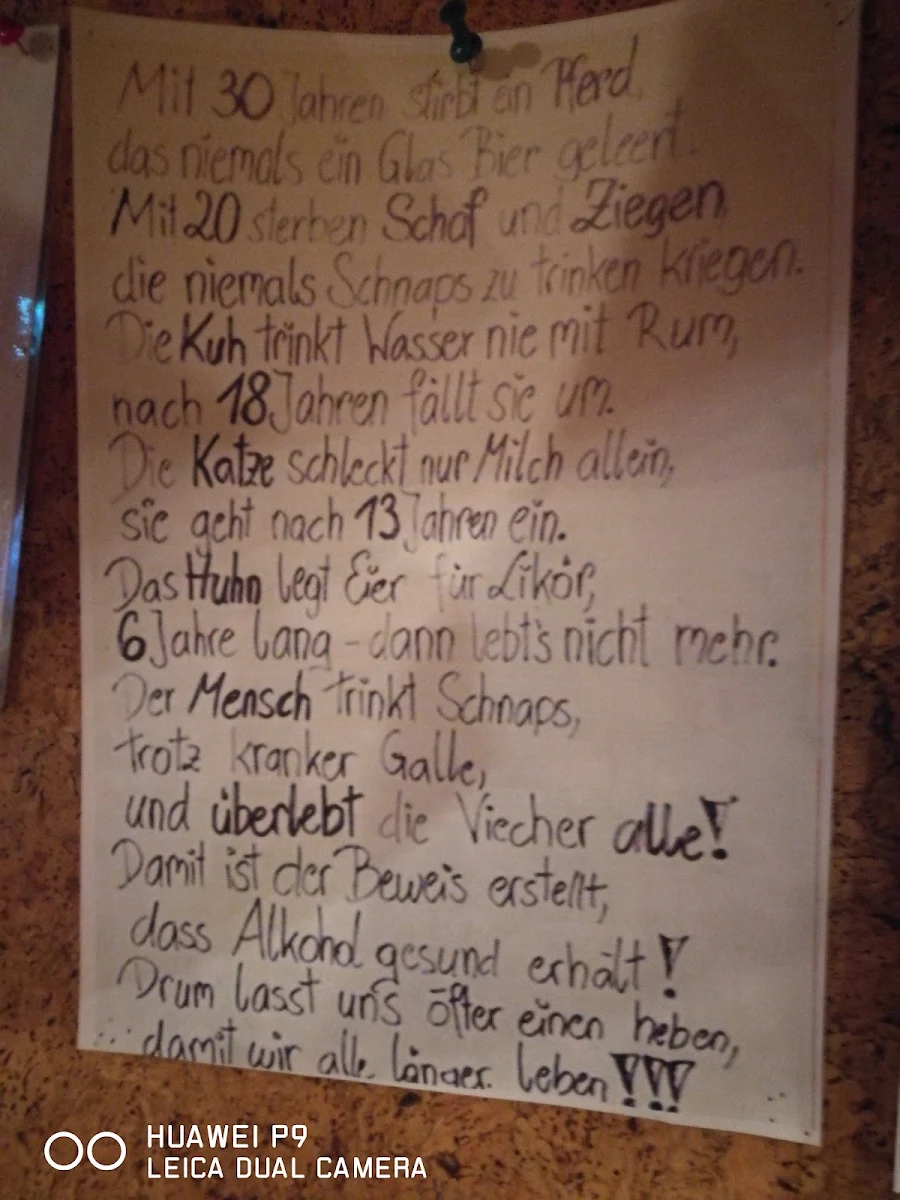 Mit 30 Jahren stirbt ein Pferd,
das niemals ein Glas Bier geleert.
Mit 20 sterben Schaf und Ziegen,
die niemals Schnaps zu trinken kriegen.
Die Kuh trinkt Wasser nie mit Rum,
nach 18 Jahren fällt sie um.
Die Katze schleckt nur Milch allein,
sie geht nach 13 Jahren ein.
Das Huhn legt Eier für Likör,
6 Jahre lang - dann lebt's nicht mehr.
Der Mensch trinkt Schnaps,
trotz kranker Galle,
und überlebt die Viecher alle!
Damit ist der Beweis erstellt,
dass Alkohol gesund erhält!
Drum lasst uns öfter einen heben,
... damit wir alle länger leben!!!
HUAWEI P9
LEICA DUAL CAMERA